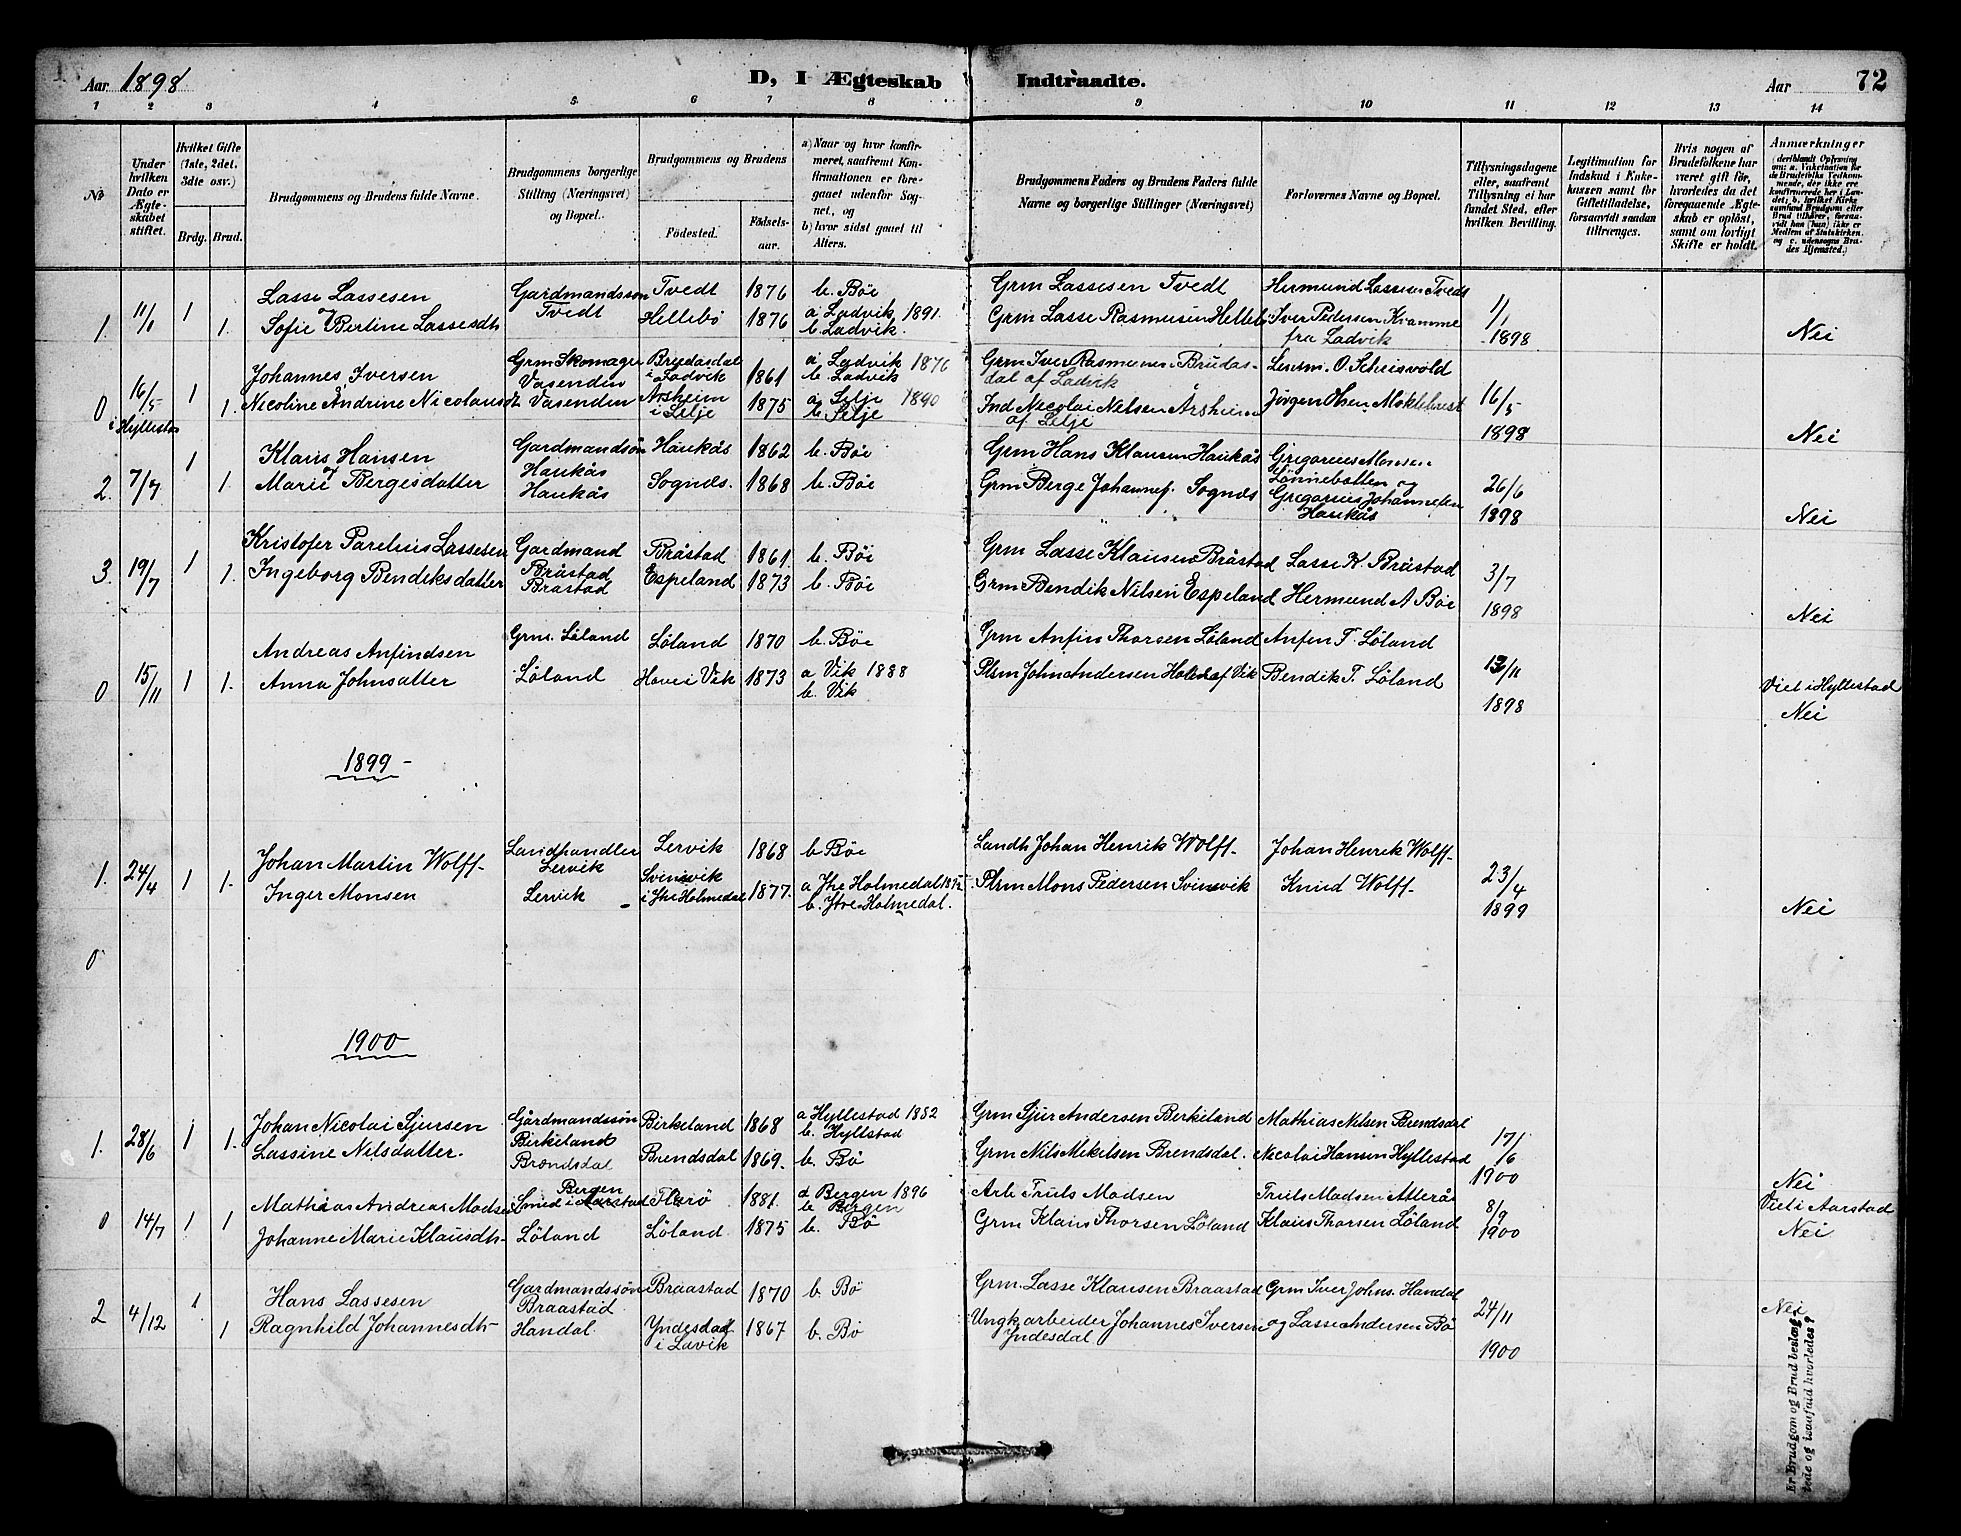 Aar 1898 D, I Ægteskab Indtraadte. Aar 72
1 2 3 4 5 6 7 8 9 10 11 12 13 14
No
Under hvilken Dato er Ægteskabet stiftet.
Hvilket Gifte (1ste, 2det. 3die osv.)
Brdg. Brud.
Brudgommens og Brudens fulde Navne.
Brudgommens borgerlige Stilling (Næringsvei) og Bopæl.
Brudgommens og Brudens
Fødested. Fødselsaar.
a) Naar og hvor konfirmeret, saafremt Konfirmationen er foregaaet udenfor Sognet, og
b) hvor sidst gaaet til Alters.
Brudgommens Faders og Brudens Faders fulde Navne og borgerlige Stillinger (Næringsvei)
Forlovernes Navne og Bopæl.
Tillysningsdagene eller, saafremt Tillysning ei har fundet Sted, efter hvilken Bevilling.
Legitimation for Indskud i Enkekassen samt for Giftetilladelse, forsaavidt saadan tiltrænges.
Hvis nogen af Brudefolkene har været gift før, hvorledes da det foregaaende Ægteskab er opløst, samt om lovligt Skifte er holdt.
Anmærkninger
(deriblandt Oplysning om: a. Vakcination for de Brudefolks Vedkommende, der ikke ere konfirmerede her i Landet; b. hvilket Kirkesamfund Brudgom eller Brud tilhører, forsaavidt han (hun) ikke er Medlem af Statskirken, og c. udensogns Brudes Hjemsted.)
1. 11/1 1 Lasse Lassesen Gardmandssøn Tvedt Tvedt 1876 b. Böe Grm Lassesen Tvedt Hermund Lassesen Tvedt 1/1 1898
1. Sofie Bertine Lassesdtr Hellebö 1876 a Ladvik 1891. b. Ladvik. Grm Lasse Rasmusen Hellebö Iver Pedersen Kramme fra Ladvik Nei
0 16/5 i Hyllestad 1 Johannes Iversen Grm Skomager Vasenden Brudasdal i Ladvik 1861 a Ladvik 1876 b. Ladvik Grm Iver Rasmusen Brudasdal af Ladvik Lensm. O. 16/5 1898
1. Nicoline Andrine Nicolaisdt. Vasenden Årsheim i Selje 1875 a Selje 1890 b. Selje Ind Nicolai Nilsen Årsheim af Selje Jörgen Olsen Nei
2. 7/7 1 Klaus Hansen Gardmandssön Haukås Haukås 1862 b. Böe Grm Hans Klausen Haukås Grigorius Monsen Lönnebotten og 26/6 1898
1. Marie Bergesdatter Haukås Sognds. 1868 b. Böe Grm Berge Johannes. Sognds Gregorius Johannesen Haukås Nei
3. 19/7 1 Kristofer Parelius Lassesen Gardmand Bråstad Bråstad 1861. b. Böe Grm Lasse Klausen Bråstad Lasse K. Bråstad 3/7 1898
1. Ingeborg Bendiksdatter Bråstad Espeland 1873 b. Böe Grm Bendik Nilsen Espeland Hermund A Böe Nei
0 15/11 1 Andreas Anfindsen Grm. Löland Löland 1870 b. Böe Grm Anfin Thorsen Löland Anfin T. Löland 13/11 1898
1. Anna Johnsatter Löland Hove i Vik 1873 a Vik 1888 b. Vik Plsm John Andersen af Vik Bendik T. Löland Viet i Hyllestad
Nei
1899 -
1. 24/4 1 Johan Martin Wolff- Landhandler Lervik Lervik 1868 b Böe Landh Johan Henrik Wolff- Johan Henrik Wolff- 23/4 1899
1. Inger Monsen Lervik - Svinevik i Ytre Holmedal 1877. a Ytre Holmedal b. Ytre Holmedal. Plsm Mons Pedersen Svinevik Knud Wolff- Nei
0
1900
1. 28/6 1 Johan Nicolai Sjursen Gårdmandssön Birkeland Birkeland 1868 a Hyllestad 1882 b. Hyllstad Grm Sjur Andersen Berkeland Mathias Nilsen Brendsdal 17/6 1900
1. Lassine Nilsdatter. Brøndsdal Brendsdal 1869. b. Bö Grm Nils Mikelsen Brendsdal. Nicolai Hansen Hyllestad Nei
0 14/7 1 Mathias Andreas Madsen Smed i Aarstad Bergen Florö 1881. a Bergen 1896 b. Bergen Arb Truls Madsen Truls Madsen Atterås 8/9 1900 Viet i Aarstad
1 Johanne Marie Klausdtr- Löland Löland 1875 b. Bö Grm Klaus Thorsen Löland Klaus Thorsen Löland Nei
2 4/12 1 Hans Lassesen Gardmandssön Braastad Braastad 1870 b. Bö Grm. Lasse Klausen Braastad Grm Iver Johns. Handal 24/11 1900 Nei
1 Ragnhild Johannesdtr- Handal. Yndesdal i Lavik 1867 b. Bö Ungk arbeider Johannes Iversen Yndesdal og Lasse Andersen Bö
Er Brudgom og Brud beslægtede og isaafald hvorledes?